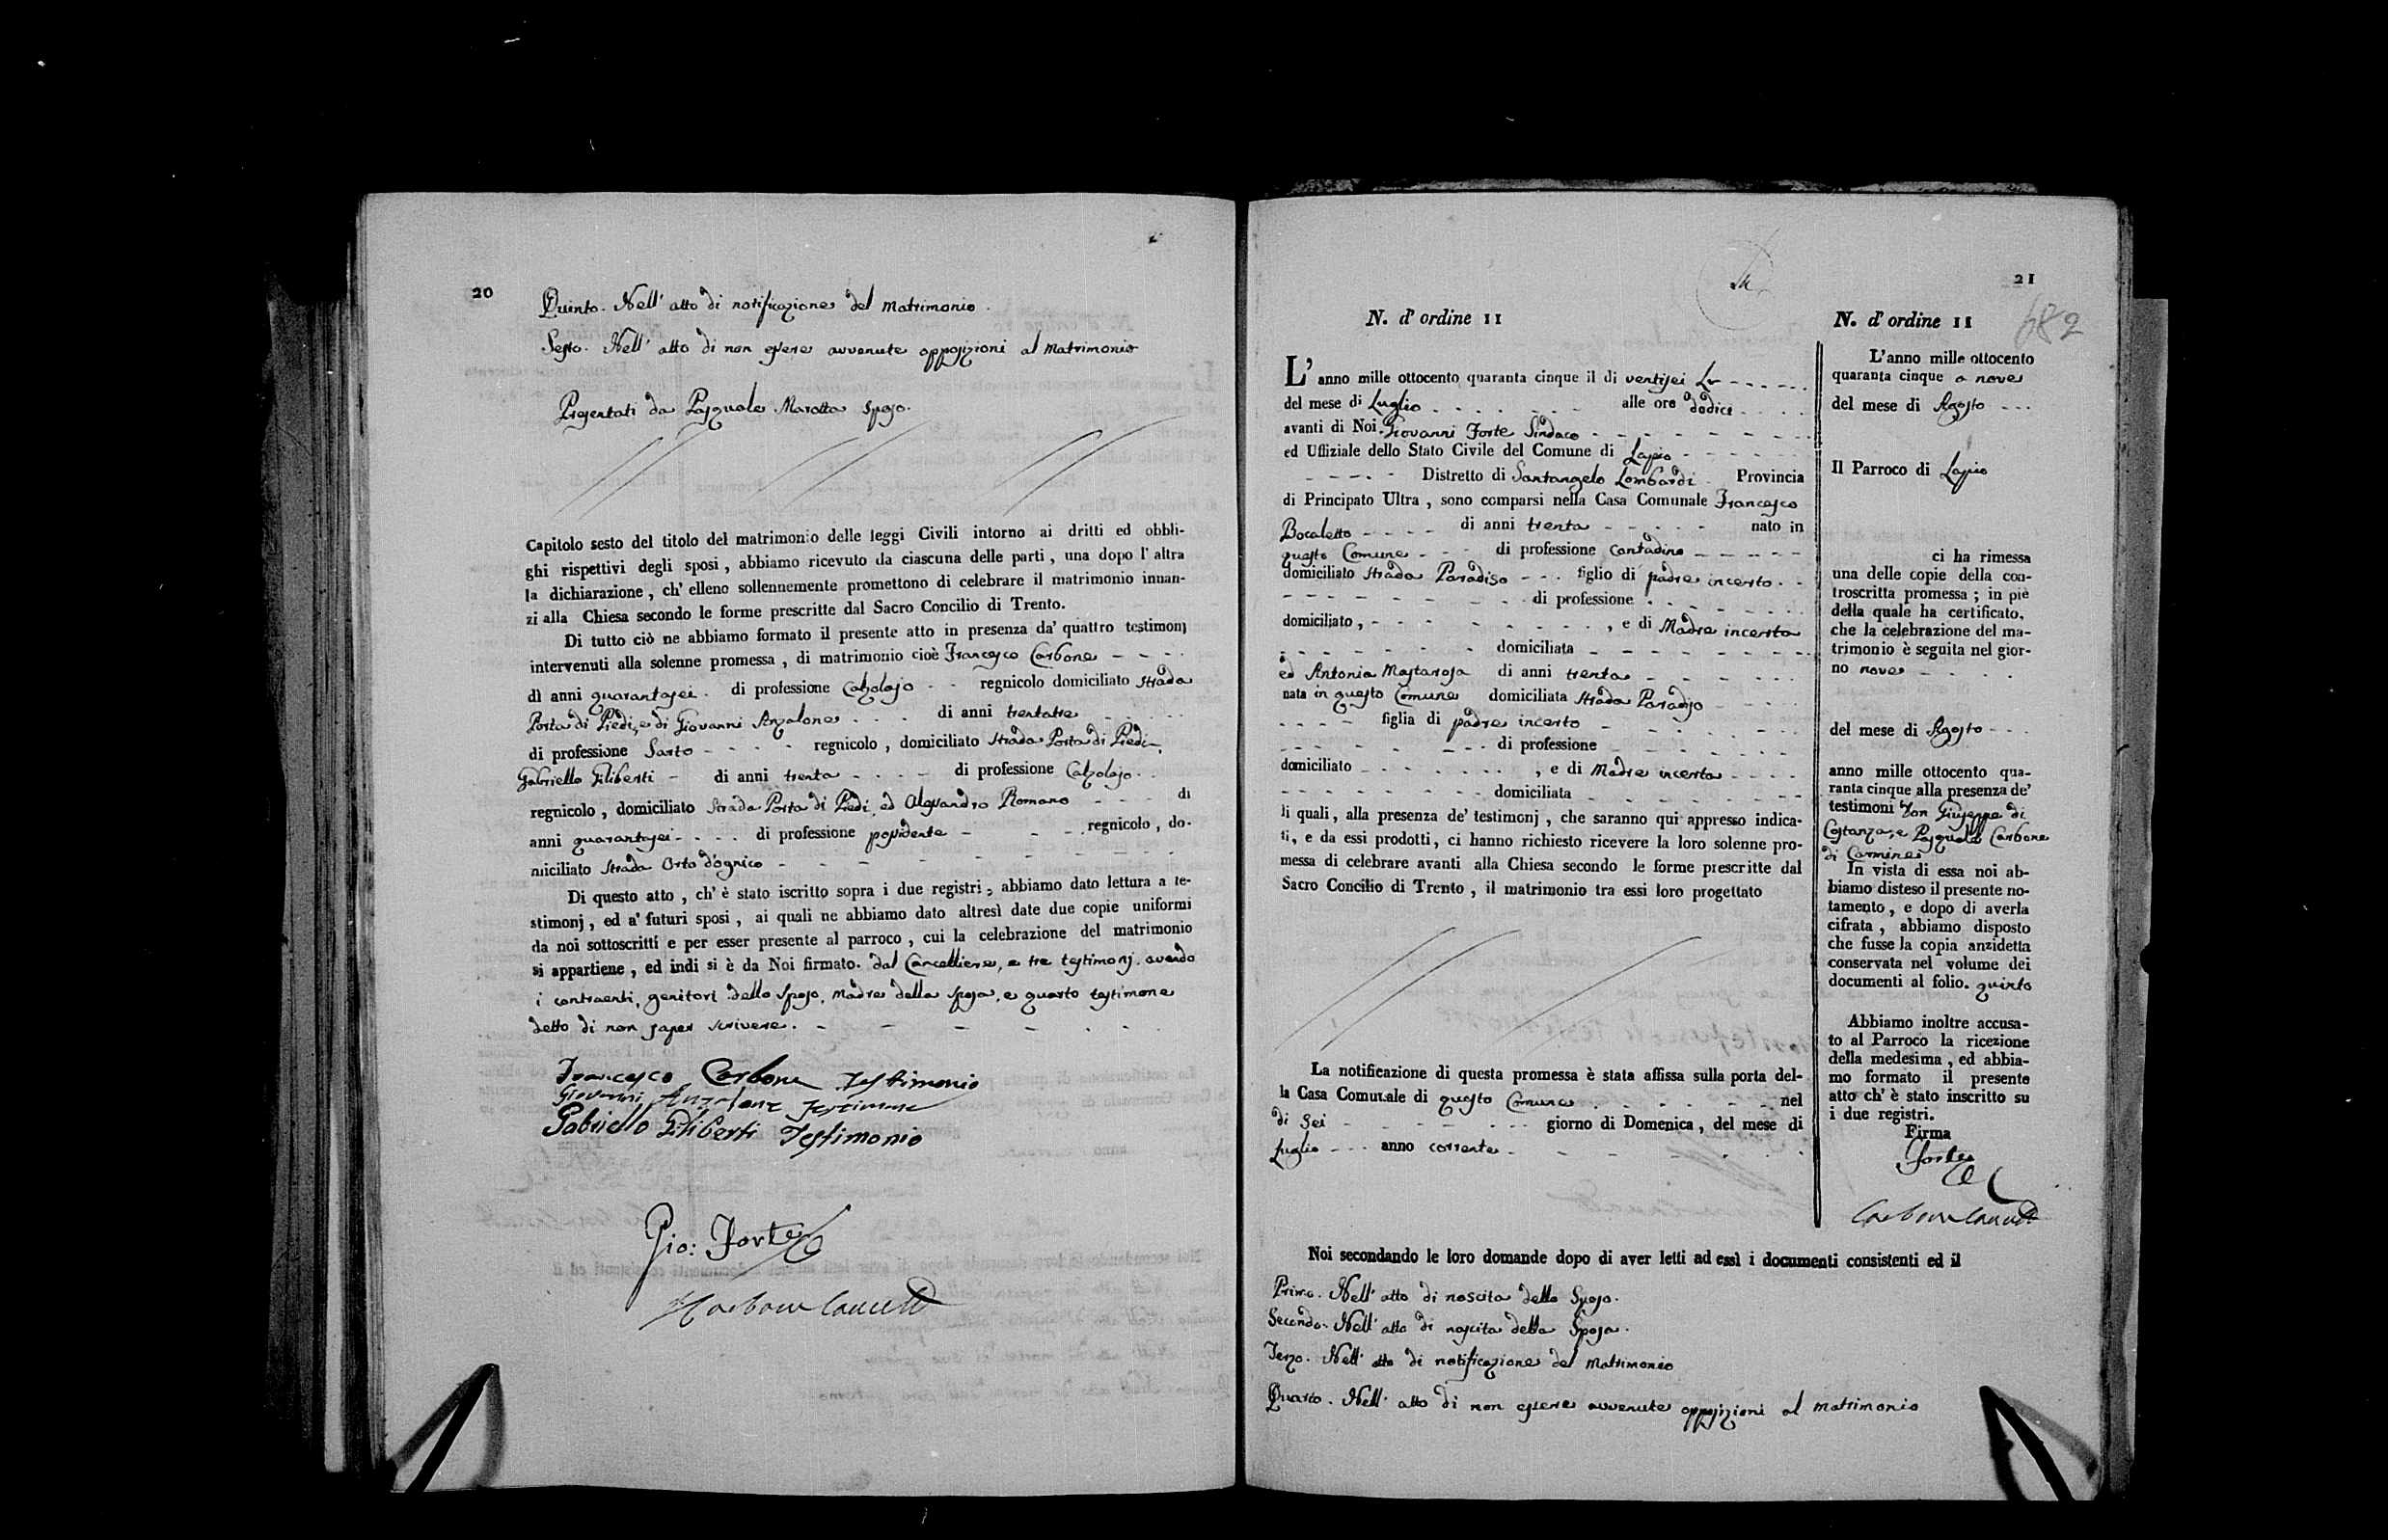 20
Quinto. Nell' atto di notificazione del Matrimonio.
Sesto. Nell' atto di non essere avvenute opposizioni al Matrimonio
Presentati da Pasquale Marotta Sposo.
Capitolo sesto del titolo del matrimonio delle leggi Civili intorno ai dritti ed obbli-
ghi rispettivi degli sposi, abbiamo ricevuto da ciascuna delle parti, una dopo l' altra
la dichiarazione, ch' elleno sollennemente promettono di celebrare il matrimonio innan-
zi alla Chiesa secondo le forme prescritte dal Sacro Concilio di Trento.
Di tutto ciò ne abbiamo formato il presente atto in presenza da' quattro testimonj
intervenuti alla solenne promessa, di matrimonio cioè Francesco Carbone
di anni quarantasei di professione Calzolajo regnicolo domiciliato Strada
Porta di Piedi, e di Giovanni Anzalone di anni trentatre
di professione Sarto regnicolo, domiciliato Strada Porta di Piedi
Gabriello Filiberti di anni trenta di professione Calzolajo
regnicolo, domiciliato Strada Porta di Piedi, ed Alessandro Romano di
anni quarantasei di professione possidente regnicolo, do-
miciliato Strada Orto d'ognico
Di questo atto, ch' è stato iscritto sopra i due registri, abbiamo dato lettura a te-
stimonj, ed a' futuri sposi, ai quali ne abbiamo dato altresì date due copie uniformi
da noi sottoscritti e per esser presente al parroco, cui la celebrazione del matrimonio
si appartiene, ed indi si è da Noi firmato. dal Cancelliere, e tre testimonj. avendo
i contraenti, genitori dello Sposo, Madre della Sposa, e quarto testimone
detto di non saper scrivere.
Francesco Carbone Testimonio
Giovanni Anzalone Testimone
Gabriello Filiberti Testimonio
Gio: Forte
21
682
N. d' ordine 11
L' anno mille ottocento quaranta cinque il di ventisei
del mese di Luglio alle ore dodici
avanti di Noi Giovanni Forte Sindaco
ed Uffiziale dello Stato Civile del Comune di Lapio
Distretto di Santangelo Lombardi Provincia
di Principato Ultra, sono comparsi nella Casa Comunale Francesco
Bocaletto di anni trenta nato in
questo Comune di professione Contadino
domiciliato Strada Paradiso figlio di padre incerto
di professione
domiciliato, , e di Madre incerta
domiciliata
ed Antonia Mastarosa di anni trenta
nata in questo Comune domiciliata Strada Paradiso
figlia di padre incerto
di professione
domiciliato , e di Madre incerta
domiciliata
li quali, alla presenza de' testimonj, che saranno qui appresso indica-
ti, e da essi prodotti, ci hanno richiesto ricevere la loro solenne pro-
messa di celebrare avanti alla Chiesa secondo le forme prescritte dal
Sacro Concilio di Trento, il matrimonio tra essi loro progettato
La notificazione di questa promessa è stata affissa sulla porta del-
la Casa Comunale di questo Comune nel
di Sei giorno di Domenica, del mese di
Luglio anno corrente
N. d' ordine 11
L'anno mille ottocento
quaranta cinque a nove
del mese di Agosto
Il Parroco di Lapio
ci ha rimessa
una delle copie della con-
troscritta promessa; in piè
della quale ha certificato,
che la celebrazione del ma-
trimonio è seguita nel gior-
no nove
del mese di Agosto
anno mille ottocento qua-
ranta cinque alla presenza de'
testimoni Don Giuseppe di
Costanza, e Pasquale Carbone
di Carmine
In vista di essa noi ab-
biamo disteso il presente no-
tamento, e dopo di averla
cifrata, abbiamo disposto
che fusse la copia anzidetta
conservata nel volume dei
documenti al folio. quinto
Abbiamo inoltre accusa-
to al Parroco la ricezione
della medesima, ed abbia-
mo formato il presente
atto ch' è stato inscritto su
i due registri.
Firma
Forte
Noi secondando le loro domande dopo di aver letti ad essi i documenti consistenti ed il
Primo. Nell' atto di nascita dello Sposo.
Secondo. Nell' atto di nascita della Sposa.
Terzo. Nell' atto di notificazione del Matrimonio
Quarto. Nell' atto di non essere avvenute opposizioni al Matrimonio